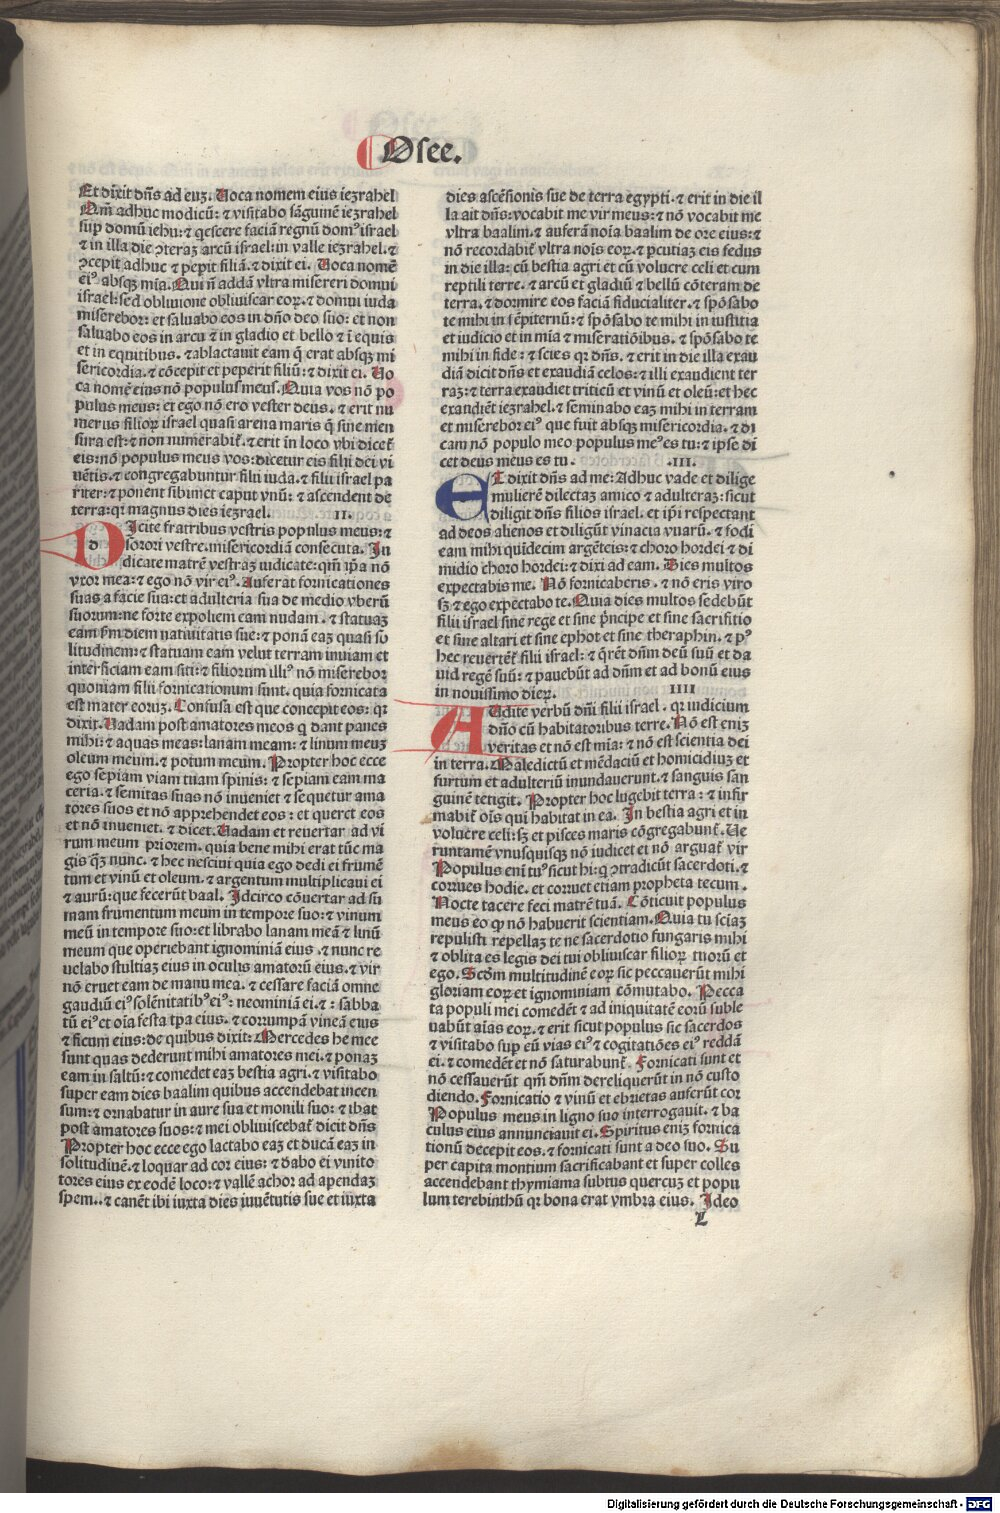 Osee.
Et dixit dñs ad euʒ. Uoca nomem eius iezrahel
Qm̄ adhuc modicū: ⁊ visitabo sāguinē iezrahel
sup domū iehu: ⁊ q̄escere faciā regnū domꝰ israel
⁊ in illa die ↄteraʒ arcū israel: in valle iezrahel. ⁊
ↄcepit adhuc ⁊ pepit filiā. ⁊ dixit ei. Uoca nomē
eiꝰ absqʒ mīa. Qui n̄ addā vltra misereri domui
israel: sed obliuione obliuiscar eoꝝ. ⁊ domui iuda
miserebor: et saluabo eos in dño deo suo: et non
saluabo eos in arcu ⁊ in gladio et bello ⁊ ī equis
et in equitibus. ⁊ ablactauit eam q̄ erat absqʒ mi
sericordia. ⁊ cōcepit et peperit filiū: ⁊ dixit ei. Uo
ca nomē eius nō populus meus. Quia vos nō po
pulus meus: et ego nō ero vester deus. ⁊ erit nu
merus filioꝝ israel quasi arena maris q̄ sine men
sura est: ⁊ non numerabit̄. ⁊ erit in loco vbi dicet̄
eis: nō populus meus vos: dicetur eis filii dei vi
uētis. ⁊ congregabuntur filii iuda. ⁊ filii israel pa
riter: ⁊ ponent sibimet caput vnū: ⁊ ascendent de
terra: qꝛ magnus dies iezrael. II.
DIcite fratribus vestris populus meus: ⁊
d sorori vestre. misericordiā consecuta. In
dicate matrē vestraʒ iudicate: qm̄ ip̄a nō
vxor mea: ⁊ ego nō vir eiꝰ. Auferat fornicationes
suas a facie sua: et adulteria sua de medio vberū
suorum: ne forte expoliem eam nudam. ⁊ statuaʒ
eam s̄m diem natiuitatis sue: ⁊ ponā eaʒ quasi so
litudinem: ⁊ statuam eam velut terram inuiam et
interficiam eam siti: ⁊ filiorum illiꝰ nō miserebor
quoniam filii fornicationum sunt. quia fornicata
est mater eoruʒ. Confusa est que concepit eos: qꝛ
dixit. Uadam post amatores meos q dant panes
mihi: ⁊ aquas meas: lanam meam: ⁊ linum meuʒ
oleum meum. ⁊ potum meum. Propter hoc ecce
ego sepiam viam tuam spinis: ⁊ sepiam eam ma
ceria. ⁊ semitas suas nō inueniet ⁊ sequetur ama
tores suos et nō apprehendet eos: et queret eos
et nō inueniet. ⁊ dicet. Uadam et reuertar ad vi
rum meum priorem. quia bene mihi erat tūc ma
gis q̄ʒ nunc. ⁊ hec nesciui quia ego dedi ei frumē
tum et vinū et oleum. ⁊ argentum multiplicaui ei
⁊ aurū: que fecerūt baal. Idcirco cōuertar ad su
mam frumentum meum in tempore suo: ⁊ vinum
meū in tempore suo: et librabo lanam meā ⁊ linū
meum que operiebant ignominiā eius. ⁊ nunc re
uelabo stultiaʒ eius in oculis amatorū eius. ⁊ vir
nō eruet eam de manu mea. ⁊ cessare faciā omne
gaudiū eiꝰ solēnitatibꝰ eiꝰ: neominiā ei. ⁊ : sabba
tū eiꝰ ct oīa festa tpa eius. ⁊ corrumpā vineā eius
⁊ ficum eius: de quibus dixit: Mercedes he mee
sunt quas dederunt mihi amatores mei. ⁊ ponaʒ
eam in saltū: ⁊ comedet eaʒ bestia agri. ⁊ visitabo
super eam dies baalim quibus accendebat incen
sum: ⁊ ornabatur in aure sua et monili suo: ⁊ ibat
post amatores suos: ⁊ mei obliuiscebat̄ dicit dñs
Propter hoc ecce ego lactabo eaʒ et ducā eaʒ in
solitudinē. ⁊ loquar ad cor eius: ⁊ dabo ei vinito
tores eius ex eodē loco: ⁊ vallē achor ad apendaʒ
spem.. ⁊ canēt ibi iuxta dies iuuētutis sue et iuxta
dies ascēsionis sue de terra egypti. ⁊ erit in die il
la ait dñs: vocabit me vir meus: ⁊ nō vocabit me
vltra baalim. ⁊ auferā noīa baalim de ore eius: ⁊
nō recordabit̄ vltra nois eoꝝ. ⁊ pcutiaʒ eis fedus
in die illa: cū bestia agri et cū volucre celi et cum
reptili terre. ⁊ arcū et gladiū ⁊ bellū cōteram de
terra. ⁊ dormire eos faciā fiducialiter. ⁊ spōsabo
te mihi in sēpiternū: ⁊ spōsabo te mihi in iustitia
et iudicio et in mīa ⁊ miseratiōibus. ⁊ spōsabo te
mihi in fide: ⁊ scies qꝛ dñs. ⁊ erit in die illa exau
diā dicit dñs et exaudiā celos: ⁊ illi exaudient ter
raʒ: ⁊ terra exaudiet triticū et vinū et oleū: et hec
exaudiēt iezrahel. ⁊ seminabo eaʒ mihi in terram
et miserebor eiꝰ que fuit absqʒ misericordia. ⁊ di
cam nō populo meo populus meꝰ es tu: ⁊ ipse di
cet deus meus es tu. .III.
ET dixit dñs ad me: Adhuc vade et dilige
mulierē dilectaʒ amico ⁊ adulteraʒ: sicut
diligit dñs filios israel. et ip̄i respectant
ad deos alienos et diligūt vinacia vuarū. ⁊ fodi
eam mihi quīdecim argēteis: ⁊ choro hordei ⁊ di
midio choro hordei: ⁊ dixi ad eam. Dies multos
expectabis me. Nō fornicaberis. ⁊ nō eris viro
sʒ ⁊ ego expectabo te. Quia dies multos sedebūt
filii israel sine rege et sine p̄ncipe et sine sacrifitio
et sine altari et sine ephot et sine theraphin. ⁊ pꝰ
hec reuertēt̄ filii israel: ⁊ q̄rēt dñm deū suū et da
uid regē suū: ⁊ pauebūt ad dñm et ad bonū eius
in nouissimo dieꝝ. IIII
AUdite verbū dñi filii israel. qꝛ iudicium
dño cū habitatoribus terre. Nō est eniʒ
veritas et nō est mīa: ⁊ nō est scientia dei
in terra. Maledictū et mēdaciū et homicidiuʒ et
furtum et adulteriū inundauerunt. ⁊ sanguis san
guinē tetigit. Propter hoc lugebit terra: ⁊ infir
mabit̄ oīs qui habitat in ea. In bestia agri et in
volucre celi: sʒ et pisces maris cōgregabunt̄. Ue
runtamē vnusquisqʒ nō iudicet et nō arguat̄ vir
Populus enī tuꝰ sicut hi: q ↄtradicūt sacerdoti. ⁊
corrues hodie. et corruet etiam propheta tecum.
Nocte tacere feci matrē tuā. Cōticuit populus
meus eo ꝙ nō habuerit scientiam. Quia tu sciaʒ
repulisti repellaʒ te ne sacerdotio fungaris mihi
⁊ oblita es legis dei tui obliuiscar filioꝝ tuorū et
ego. Scdm multitudinē eoꝝ sic peccauerūt mihi
gloriam eoꝝ et ignominiam cōmutabo. Pecca
ta populi mei comedēt ⁊ ad iniquitatē eorū suble
uabūt aīas eoꝝ. ⁊ erit sicut populus sic sacerdos
⁊ visitabo sup eū vias eiꝰ ⁊ cogitatiōes eiꝰ reddā
ei. ⁊ comedēt et nō saturabunt̄. Fornicati sunt et
nō cessauerūt qm̄ dñm dereliquerūt in nō custo
diendo. Fornicatio ⁊ vinū et ebrietas auferūt cor
Populus meus in ligno suo interrogauit. ⁊ ba
culus eius annunciauit ei. Spiritus eniʒ fornica
tionū decepit eos. ⁊ fornicati sunt a deo suo. Su
per capita montium sacrificabant et super colles
accendebant thymiama subtus quercuʒ et popu
lum terebinthū qꝛ bona erat vmbra eius. Ideo
L
Digitalisierung gefördert durch die Deutsche Forschungsgemeinschaft - DFG